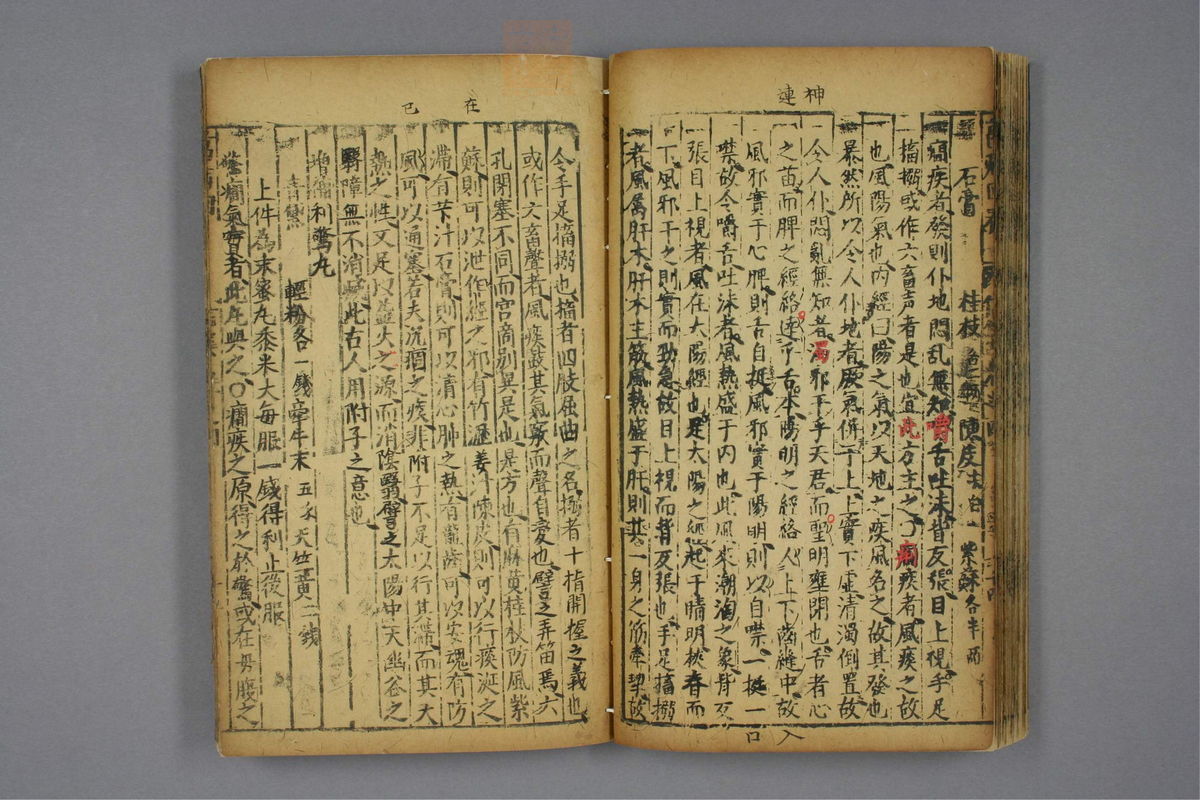 連神
石膏 桂枝 陳皮去白 紫蘇各半兩
癎疾者發則仆地悶乱無知嚼舌吐沫皆反張目上視手足
搐搦或作六畜声者是也宜此方主之○癎疾者風痰之故
也風陽氣也內經曰陽之氣以天地之疾風名之故其發也
暴然所以令人仆地者厥氣併于上上實下虛清濁倒置故
令人仆悶亂無知者濁邪干乎天君而聖明壅閉也舌者心
之苗而脾之經絡連于舌本陽明之經絡入上下齒縫中故
風邪實于心脾則舌自挺風邪實于陽明則口自噤一挺一
噤故令嚼舌吐沫者風熱盛于内也此風來潮湧之象背反
張目上視者風在太陽經也足太陽之經起于睛明挾脊而
下風邪干之則實而勁急故目上視而背反張也手足搐搦
者風属肝木肝木主筋風熱盛于肝則其一身之筋牽挈故
入
口
在
已
令手足搐搦也搐者四肢屈曲之名搦者十指開握之義也
或作六畜聲者風痰鼓其氣竅而聲自變也譬之弄笛焉六
孔閉塞不同而宮商別異是也是方也有麻黃桂枝防風紫
蘇則可以泄作經之邪有竹瀝姜汁陳皮則可以行痰涎之
滯有芐汁石膏則可以清心肺之熱有齒可以安魂有防
風可以通塞若夫沉痼之痰非附子不足以行其滯而其大
熱之性又足以益火之源而消陰翳譬之太陽中天幽谷之
翳障無不消此古人用附子之意也
利驚丸
輕粉各一錢牽牛末五錢天竺黃二錢
上件為末蜜丸黍米大每服一錢得利止後服
驚癎氣實者此丸與之○癎疾之原得之於驚或在母腹之